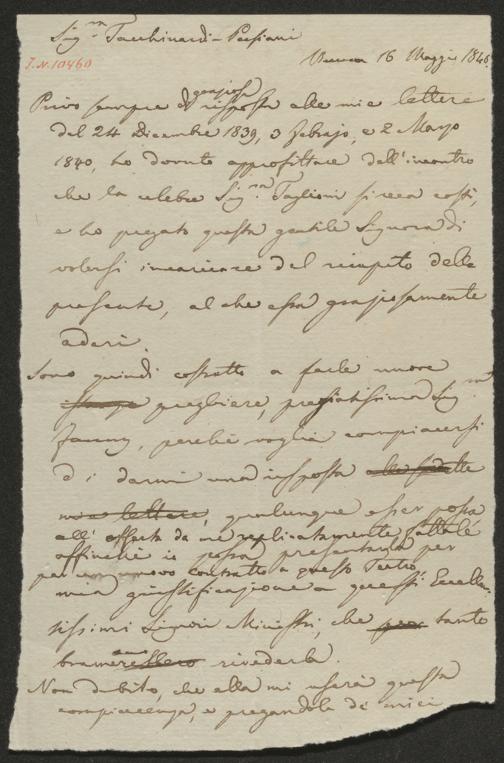 Sig.ra Tacchinardi-Persiani
I.N. 10460
Vienna 16 Maggio 1840.
Privo sempre di graziosa risposta alle mie lettere
del 24 Dicembre 1839, 3 Febrajo, e 2 Marzo
1840, ho dovuto approfittare dell'incontro
che la celebre Sig.ra Taglioni si reca costì,
e ho pregato questa gentile Signora di
volersi incaricare del ricapito della
presente, al che essa graziosamente
aderì.
Sono quindi costretto a farle nuove
preghiere, pregiatissima Sig.ra
Fanny, perchè voglia compiacersi
di darmi una risposta alle fidette
mie lettere, qualunque esser possa
all' offerta da me replicatamente fattale
per un nuovo contratto a questo Teatro,
affinchè io possa presentarla per
mia giustificazione a questi Eccellen-
tissimi Signori Ministri, che tanto
bramerebbero rivederla.
Non dubito, che ella mi userà questa
compiacenza, e pregandola de' miei